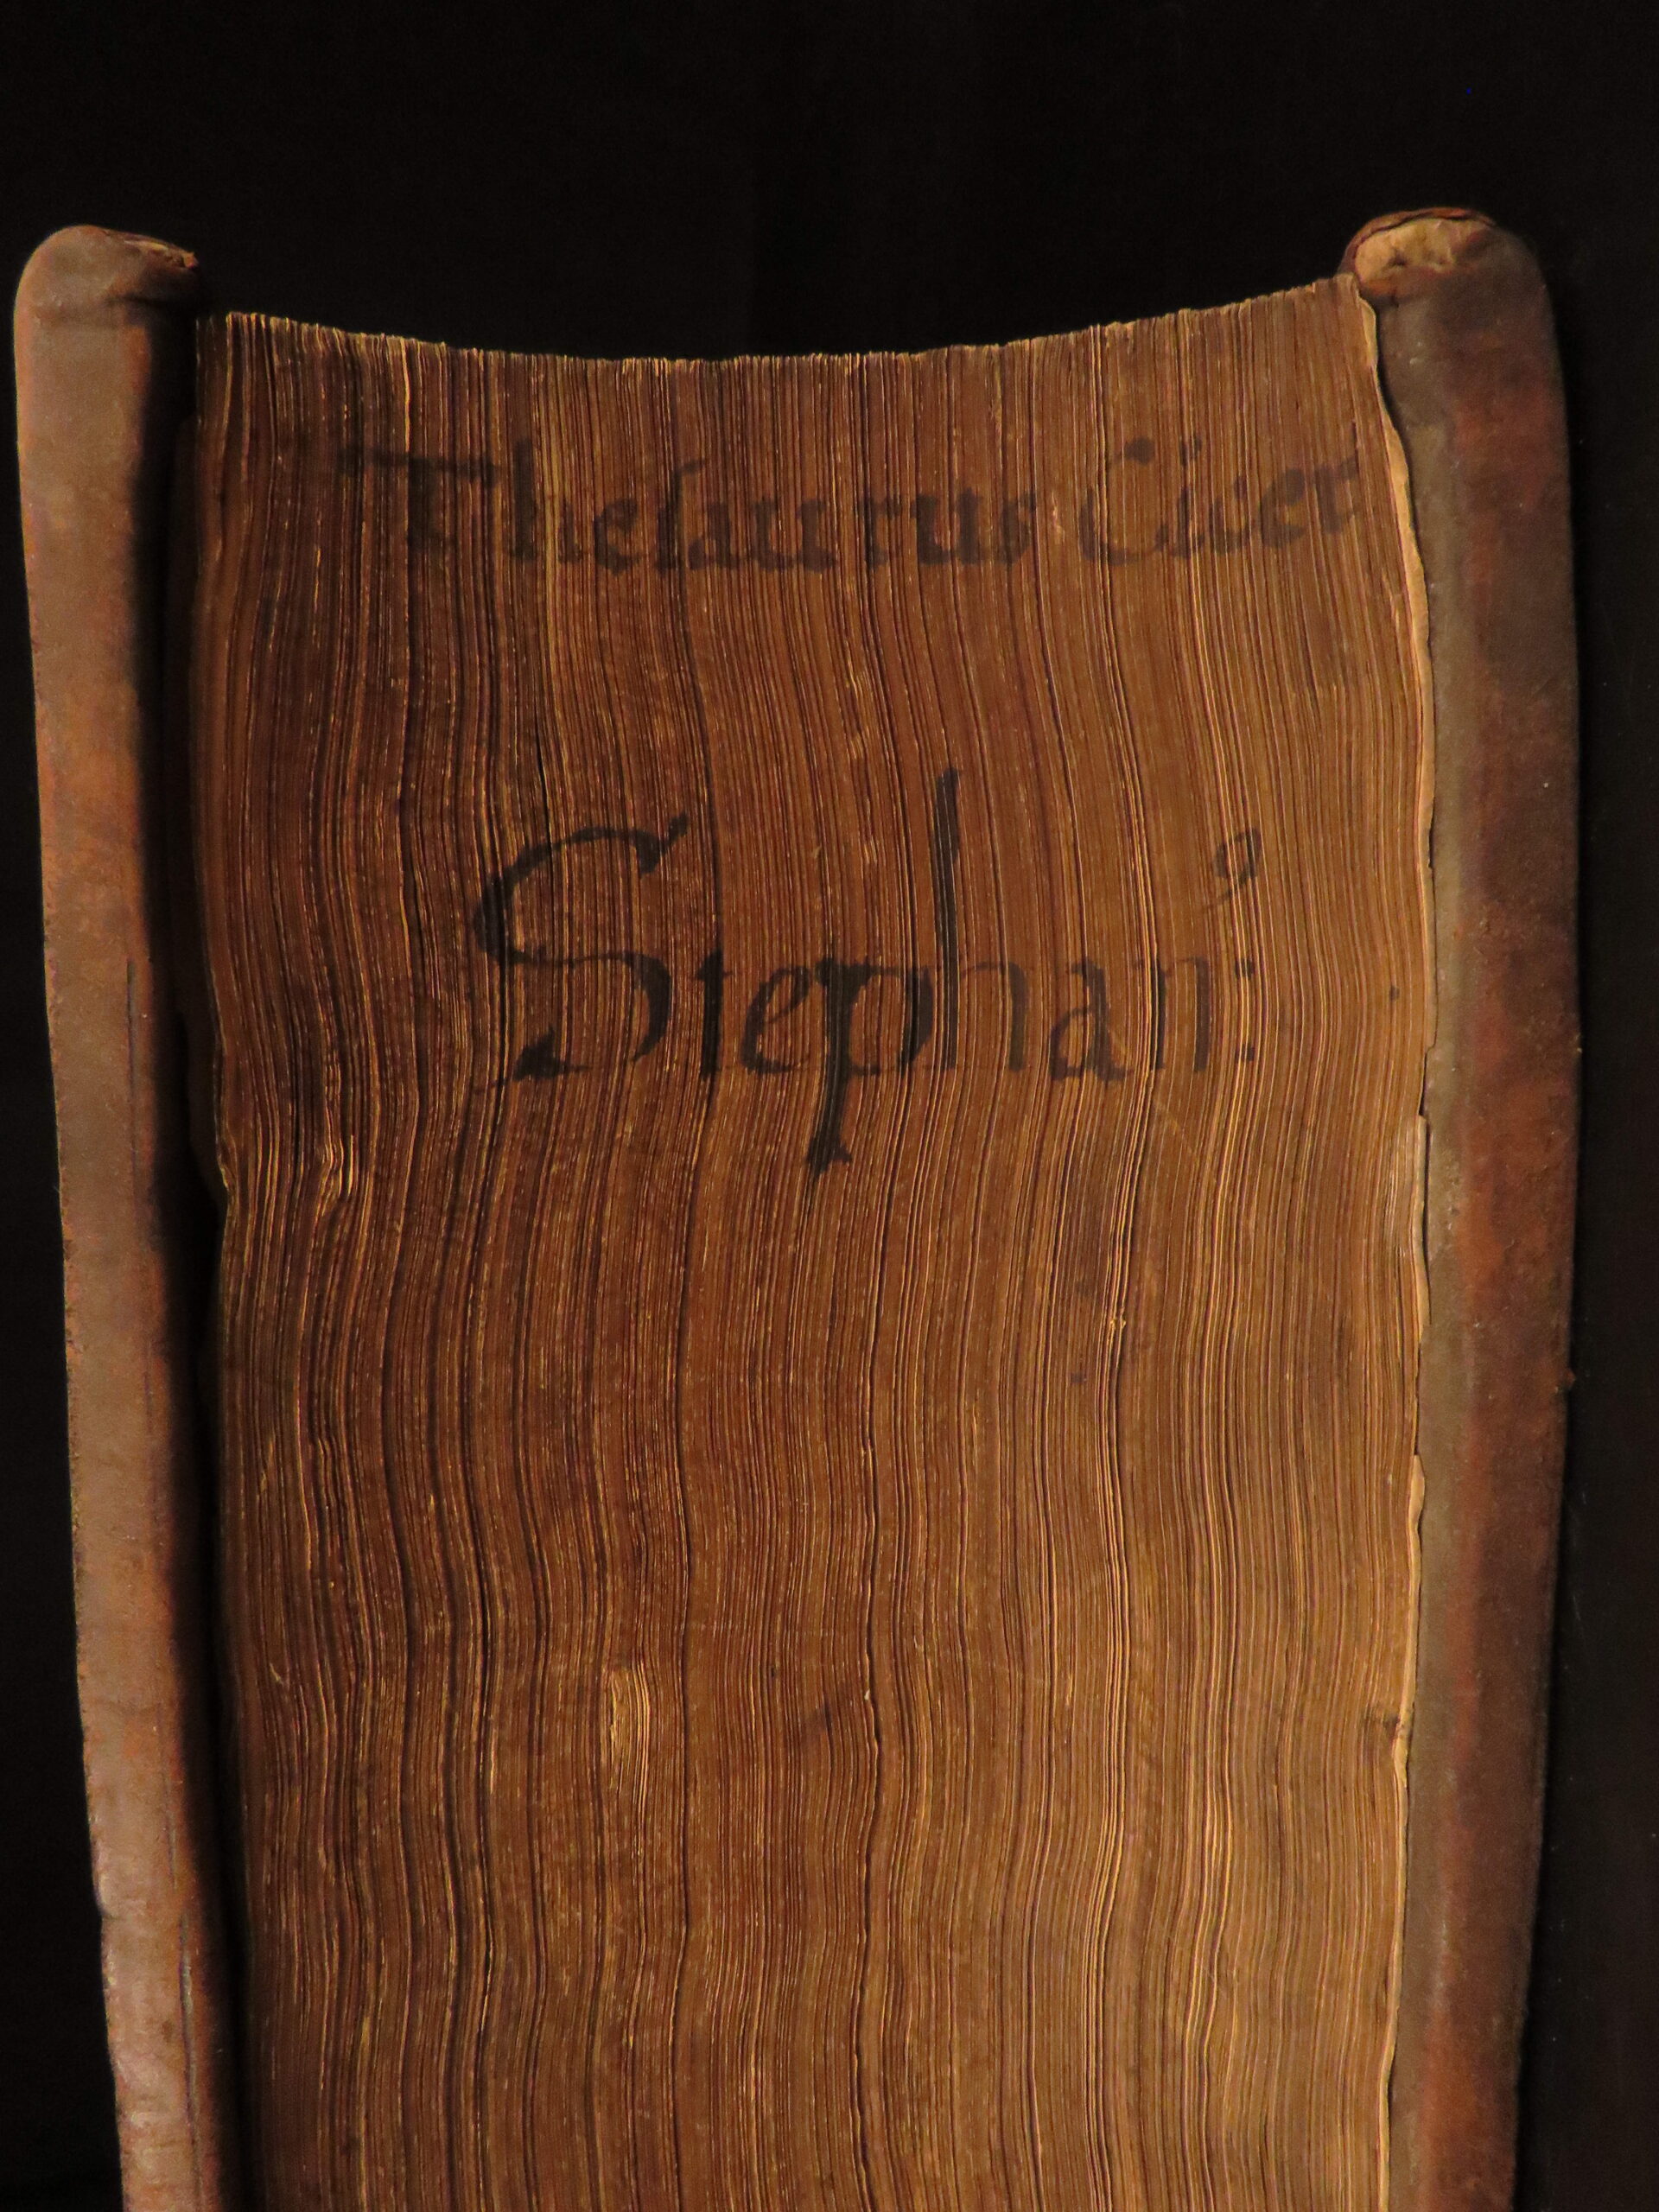 Theſaurus Cicer
Stephan:⁹